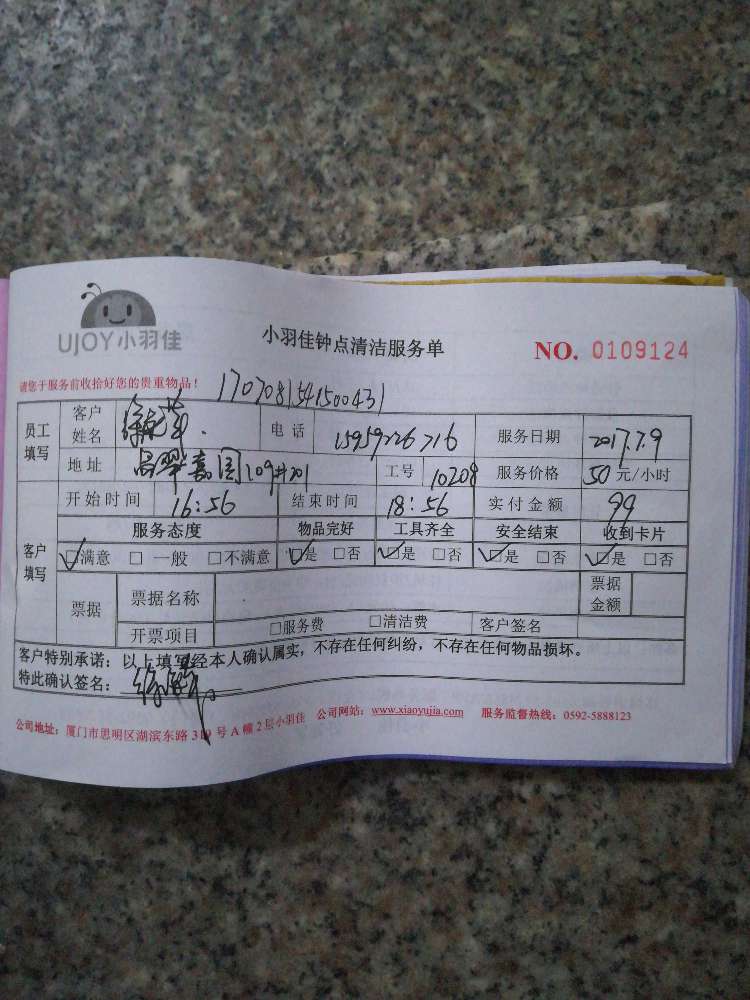 UJOY小羽佳
小羽佳钟点清洁服务单
NO. 0109124
请您于服务前收拾好您的贵重物品！
1707081541500431
员工填写 客户姓名 电话 15959226716 服务日期 2017.7.9
地址 昌翠嘉园109#201 工号 10208 服务价格 50元/小时
客户填写 开始时间 16:56 结束时间 18:56 实付金额 99
服务态度 物品完好 工具齐全 安全结束 收到卡片
☑满意 □一般 □不满意 ☑是 □否 ☑是 □否 ☑是 □否 ☑是 □否
票据 票据名称 票据金额
开票项目 □服务费 □清洁费 客户签名
客户特别承诺：以上填写经本人确认属实，不存在任何纠纷，不存在任何物品损坏。
特此确认签名：
公司地址：厦门市思明区湖滨东路319号A幢2层小羽佳 公司网站：www.xiaoyujia.com 服务监督热线：0592-5888123